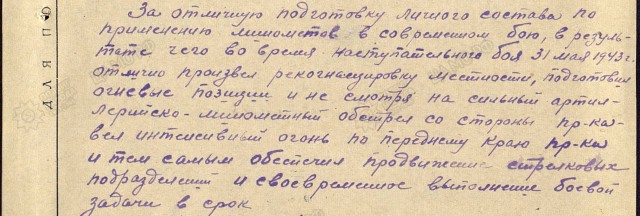 За отличную подготовку личного состава по
применению минометов в современом бою, в резуль-
тате чего во время наступательного боя 31 мая 1943 г.
отлично произвел рекогнисцировку местности, подготовил
огневые позиции и не смотря на сильный артил-
лерийско-минометный обстрел со стороны пр-ка-
вел интенсивный огонь по переднему краю пр-ка
и тем самым обеспечил продвижение стрелковых
подразделений и своевременное выполнение боевой
задачи в срок
ДЛЯ ПО